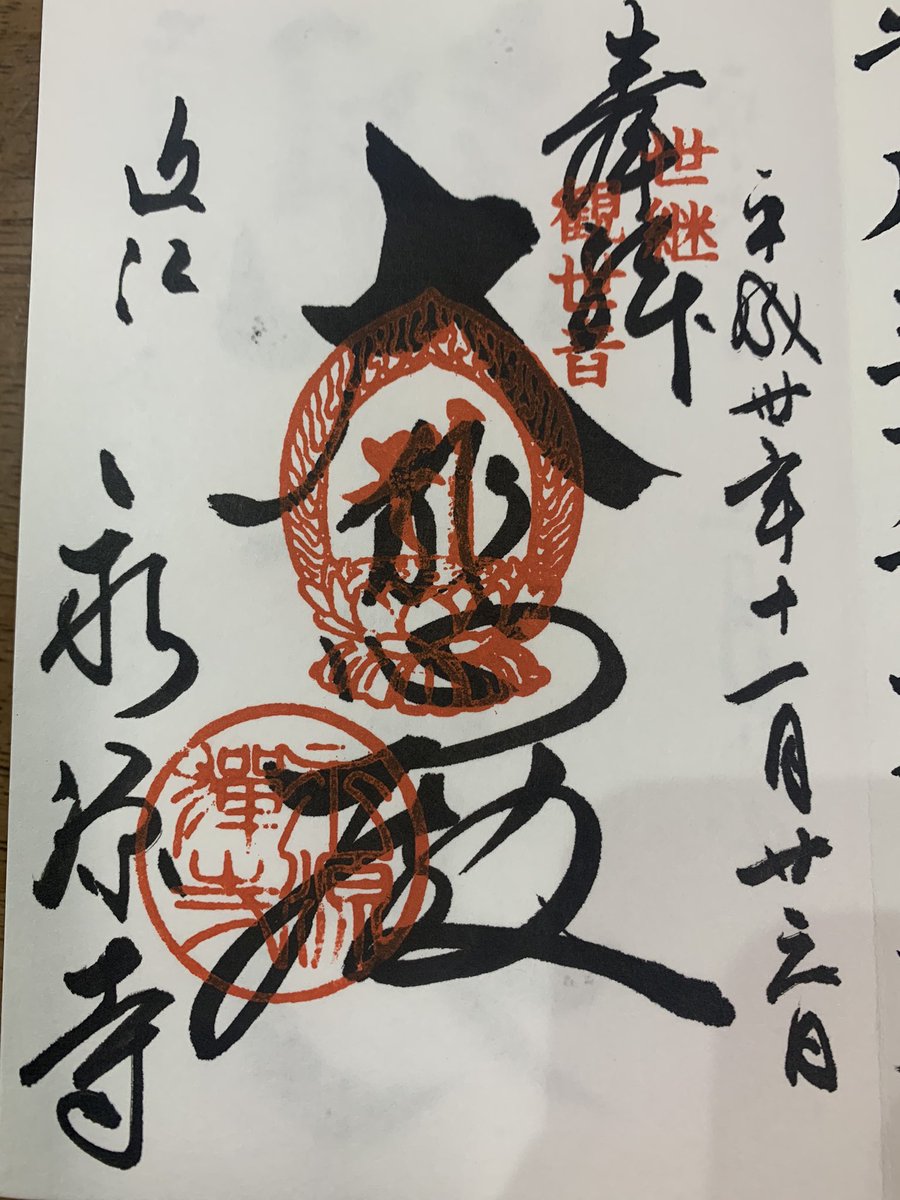 平成卅年十一月廿三日
奉拝
世継
觀世音
大悲殿
永源
禅寺
近江
永源寺